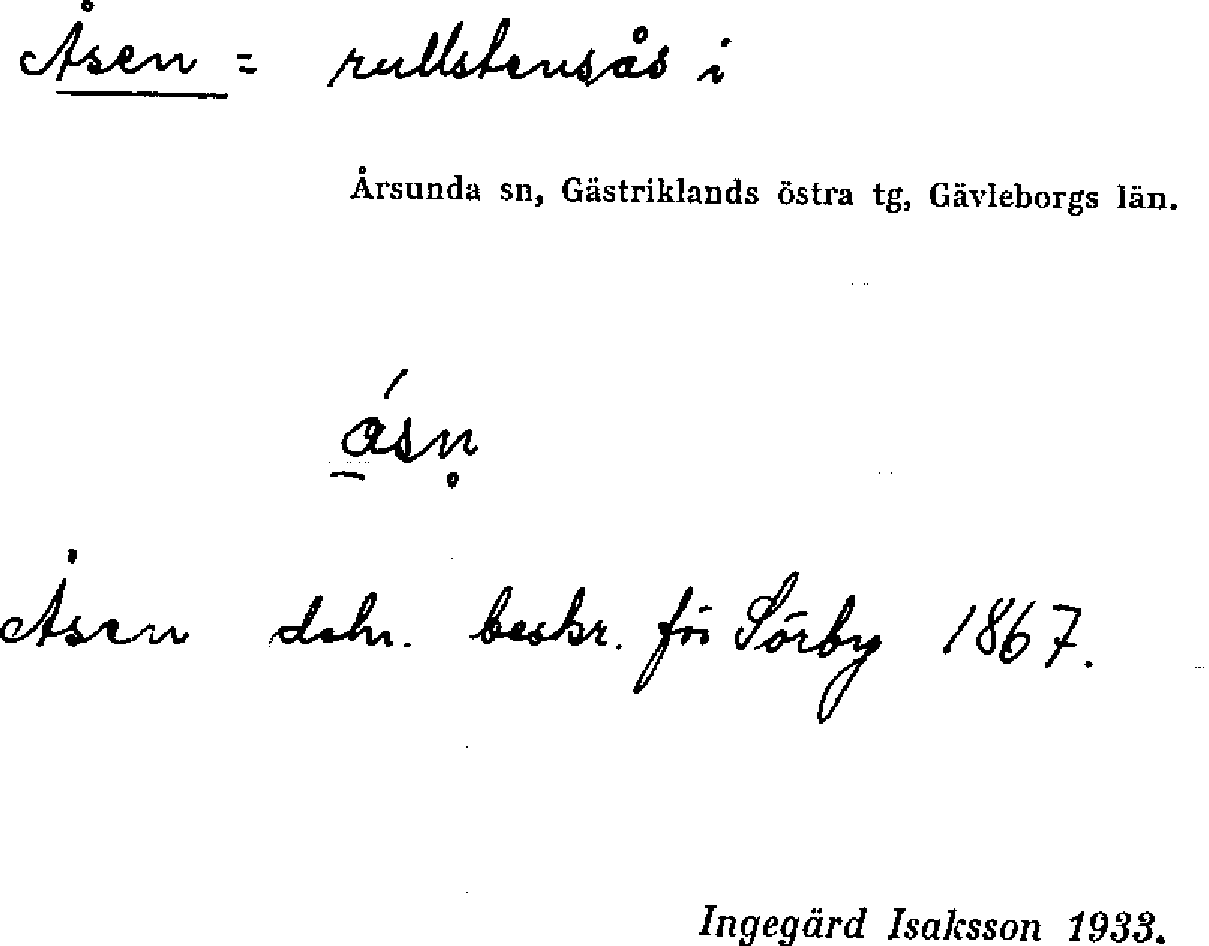 Åsen = rullstensås i
Årsunda sn, Gästriklands östra tg, Gävleborgs län.
ásn̥
Åsen dahr. beskr. för Sörby 1867.
Ingegärd Isaksson 1933.